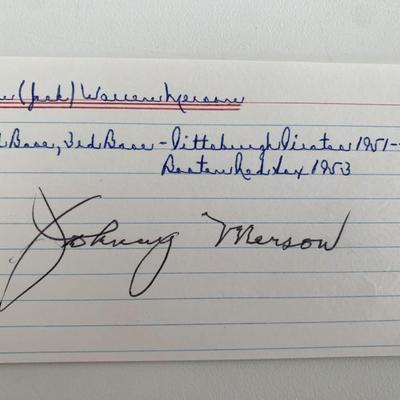 (Jack) Warren Merson
Base, 3rd Base - Pittsburgh Pirates 1951-
Boston Red Sox 1953
Johnny Merson